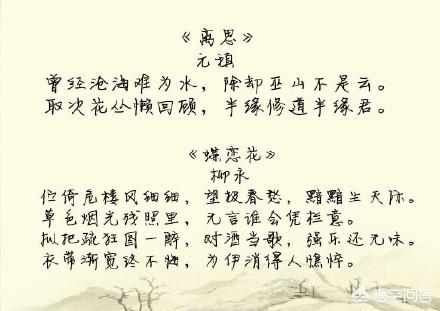 《离思》
元稹
曾经沧海难为水，除却巫山不是云。
取次花丛懒回顾，半缘修道半缘君。
《蝶恋花》
柳永
伫倚危楼风细细，望极春愁，黯黯生天际。
草色烟光残照里，无言谁会凭栏意。
拟把疏狂图一醉，对酒当歌，强乐还无味。
衣带渐宽终不悔，为伊消得人憔悴。
悟空问答